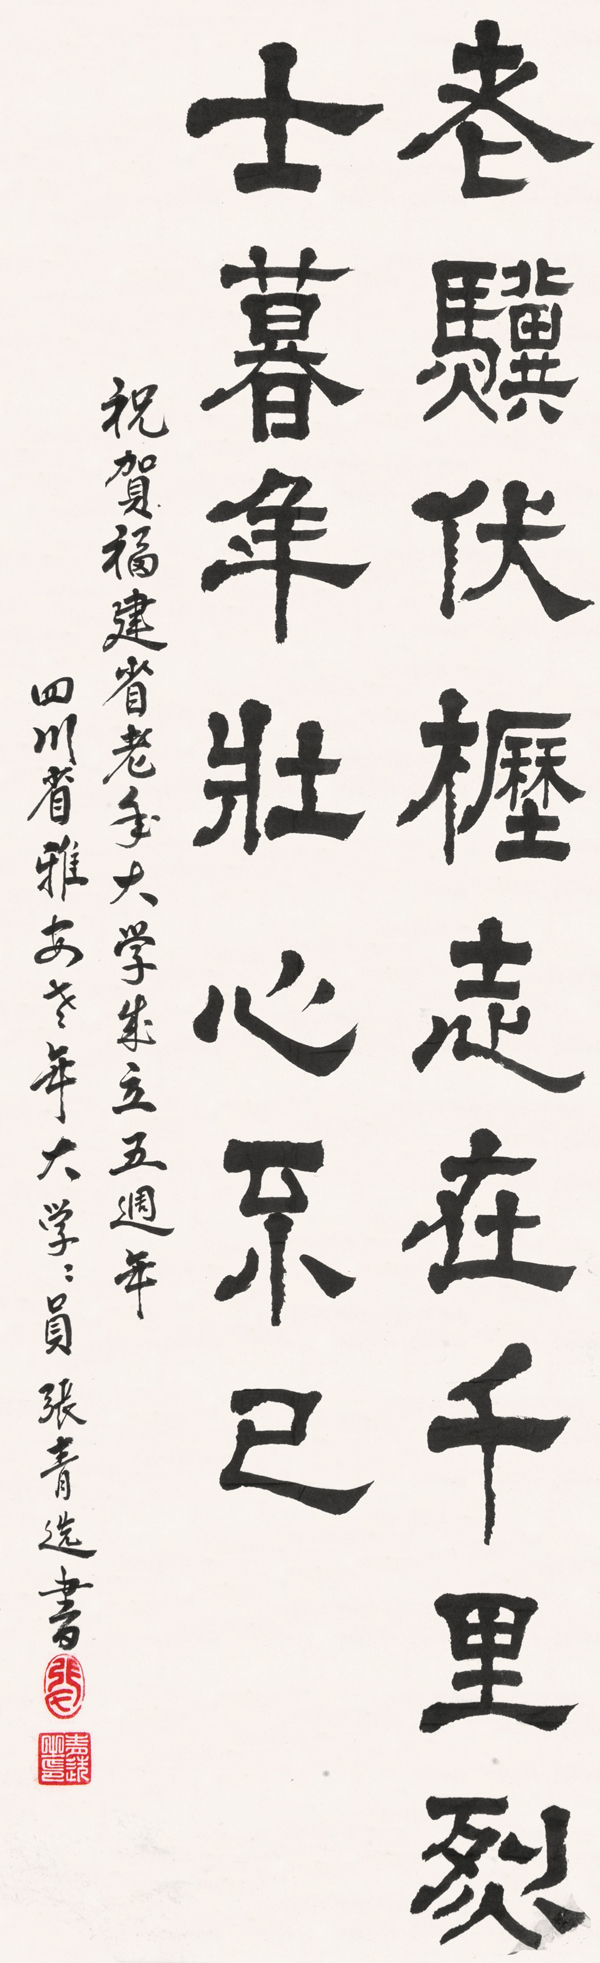 老驥伏櫪志在千里烈
士暮年壯心不已
祝賀福建省老年大学成立五週年
四川省雅安老年大学〻員張青选書